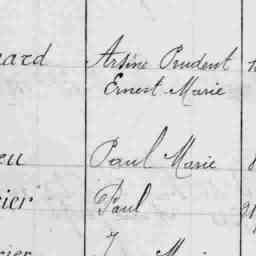 ard Arsène Prudent
Ernest Marie
eu Paul Marie
ier Paul
Marie